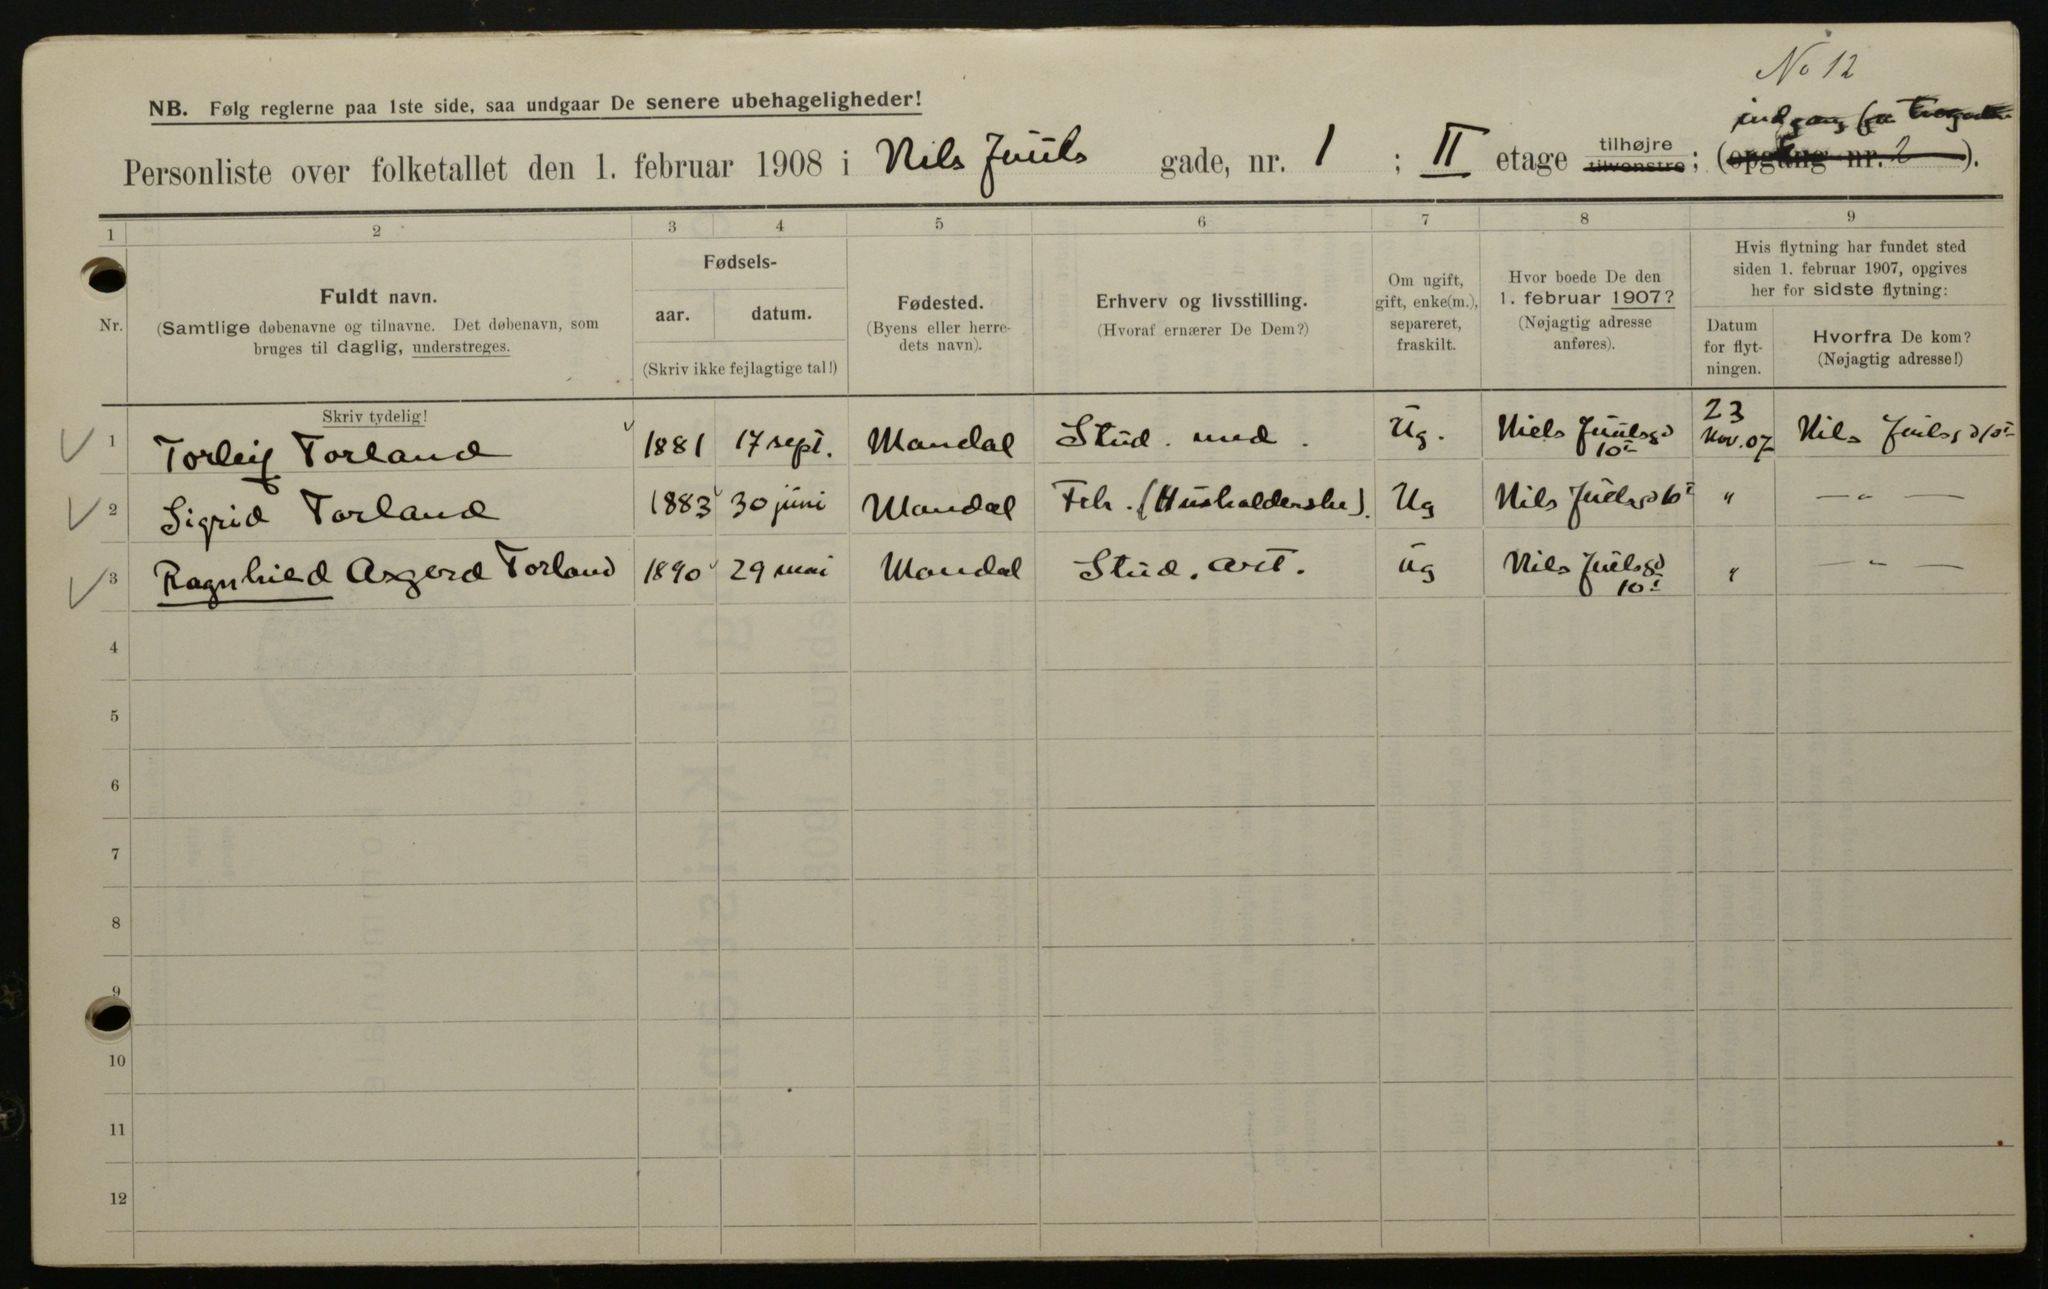 No 12
NB. Følg reglerne paa 1ste side, saa undgaar De senere ubehageligheder!
indgang fra
Personliste over folketallet den 1. februar 1908 i Nils Juuls gade, nr. 1 ; II etage tilhøjre tilvenstre; (opgang nr. 2).
1 2 3 4 5 6 7 8 9
Nr.
Fuldt navn.
(Samtlige døbenavne og tilnavne. Det døbenavn, som
bruges til daglig, understreges.
Fødsels-
aar. datum.
(Skriv ikke fejlagtige tal!)
Fødested.
(Byens eller herre-
dets navn).
Erhverv og livsstilling.
(Hvoraf ernærer De Dem?)
Om ugift,
gift, enke(m.),
separeret,
fraskilt.
Hvor boede De den
1. februar 1907?
(Nøjagtig adresse
anføres).
Hvis flytning har fundet sted
siden 1. februar 1907, opgives
her for sidste flytning:
Datum
for flyt-
ningen.
Hvorfra De kom?
(Nøjagtig adresse!)
Skriv tydelig!
1 Torleif Torland 1881 17 sept. Mandal Stud. med. Ug. Niels Juulsgd 10 I 23 Nov. 07 Nils Juulsgd 10 I
2 Sigrid Torland 1883 30 juni Mandal Frk. (Husholderske). Ug Nils Juulsgd „ — „ —
3 Ragnhild Asgerd Torland 1890 29 mai Mandal Stud. art. Ug Nils Juulsgd 10 I „ — „ —
4
5
6
7
8
9
10
11
12